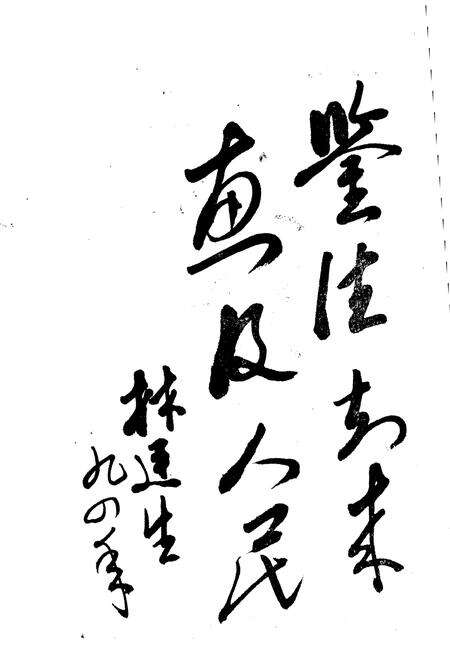 鉴往知来
惠及人民
林运生
九四年